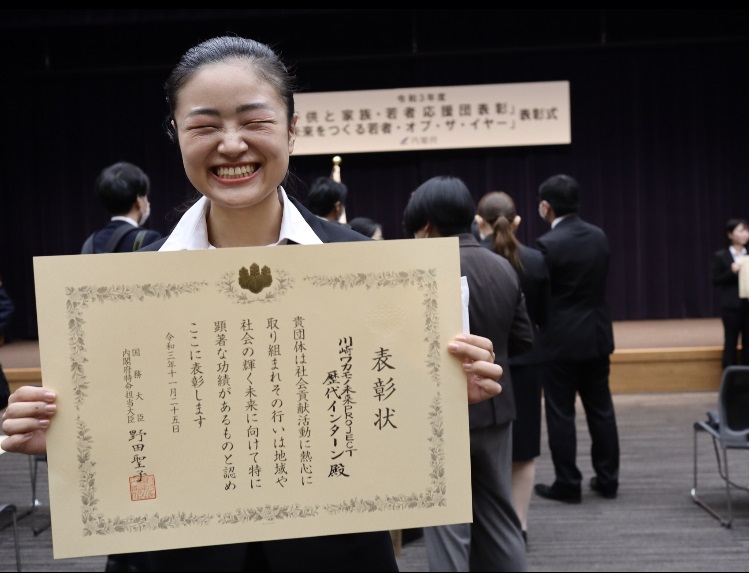 令和3年度
供と家族・若者応援団表彰」
未来をつくる若者・オブ・ザ・イヤー」
表彰式
内閣府
表彰状
川崎ワカモノ未来PROJECT
歴代インターン殿
貴団体は社会貢献活動に熱心に
取り組まれその行いは地域や
社会の輝く未来に向けて特に
顕著な功績があるものと認め
ここに表彰します
令和三年十一月二十五日
国務大臣
内閣府特命担当大臣
野田聖子